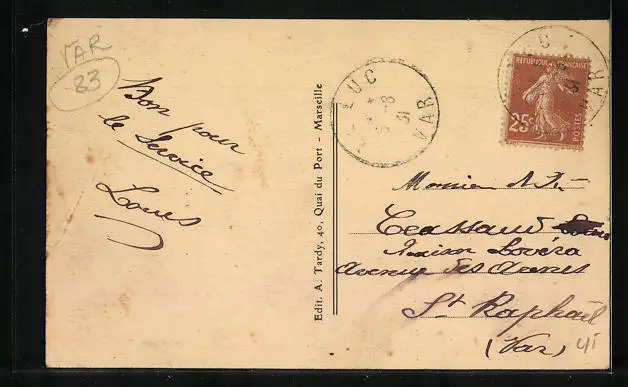 VAR
83
Bon pour
le Service
Louis
Edit. A. Tardy, 40, Quai du Port - Marseille
LUC
8
31
VAR
LUC
VAR
REPUBLIQUE FRANÇAISE
25c
POSTES
Monsieur
Maison Lovéra
Avenue des Arènes
St Raphaël
(Var)